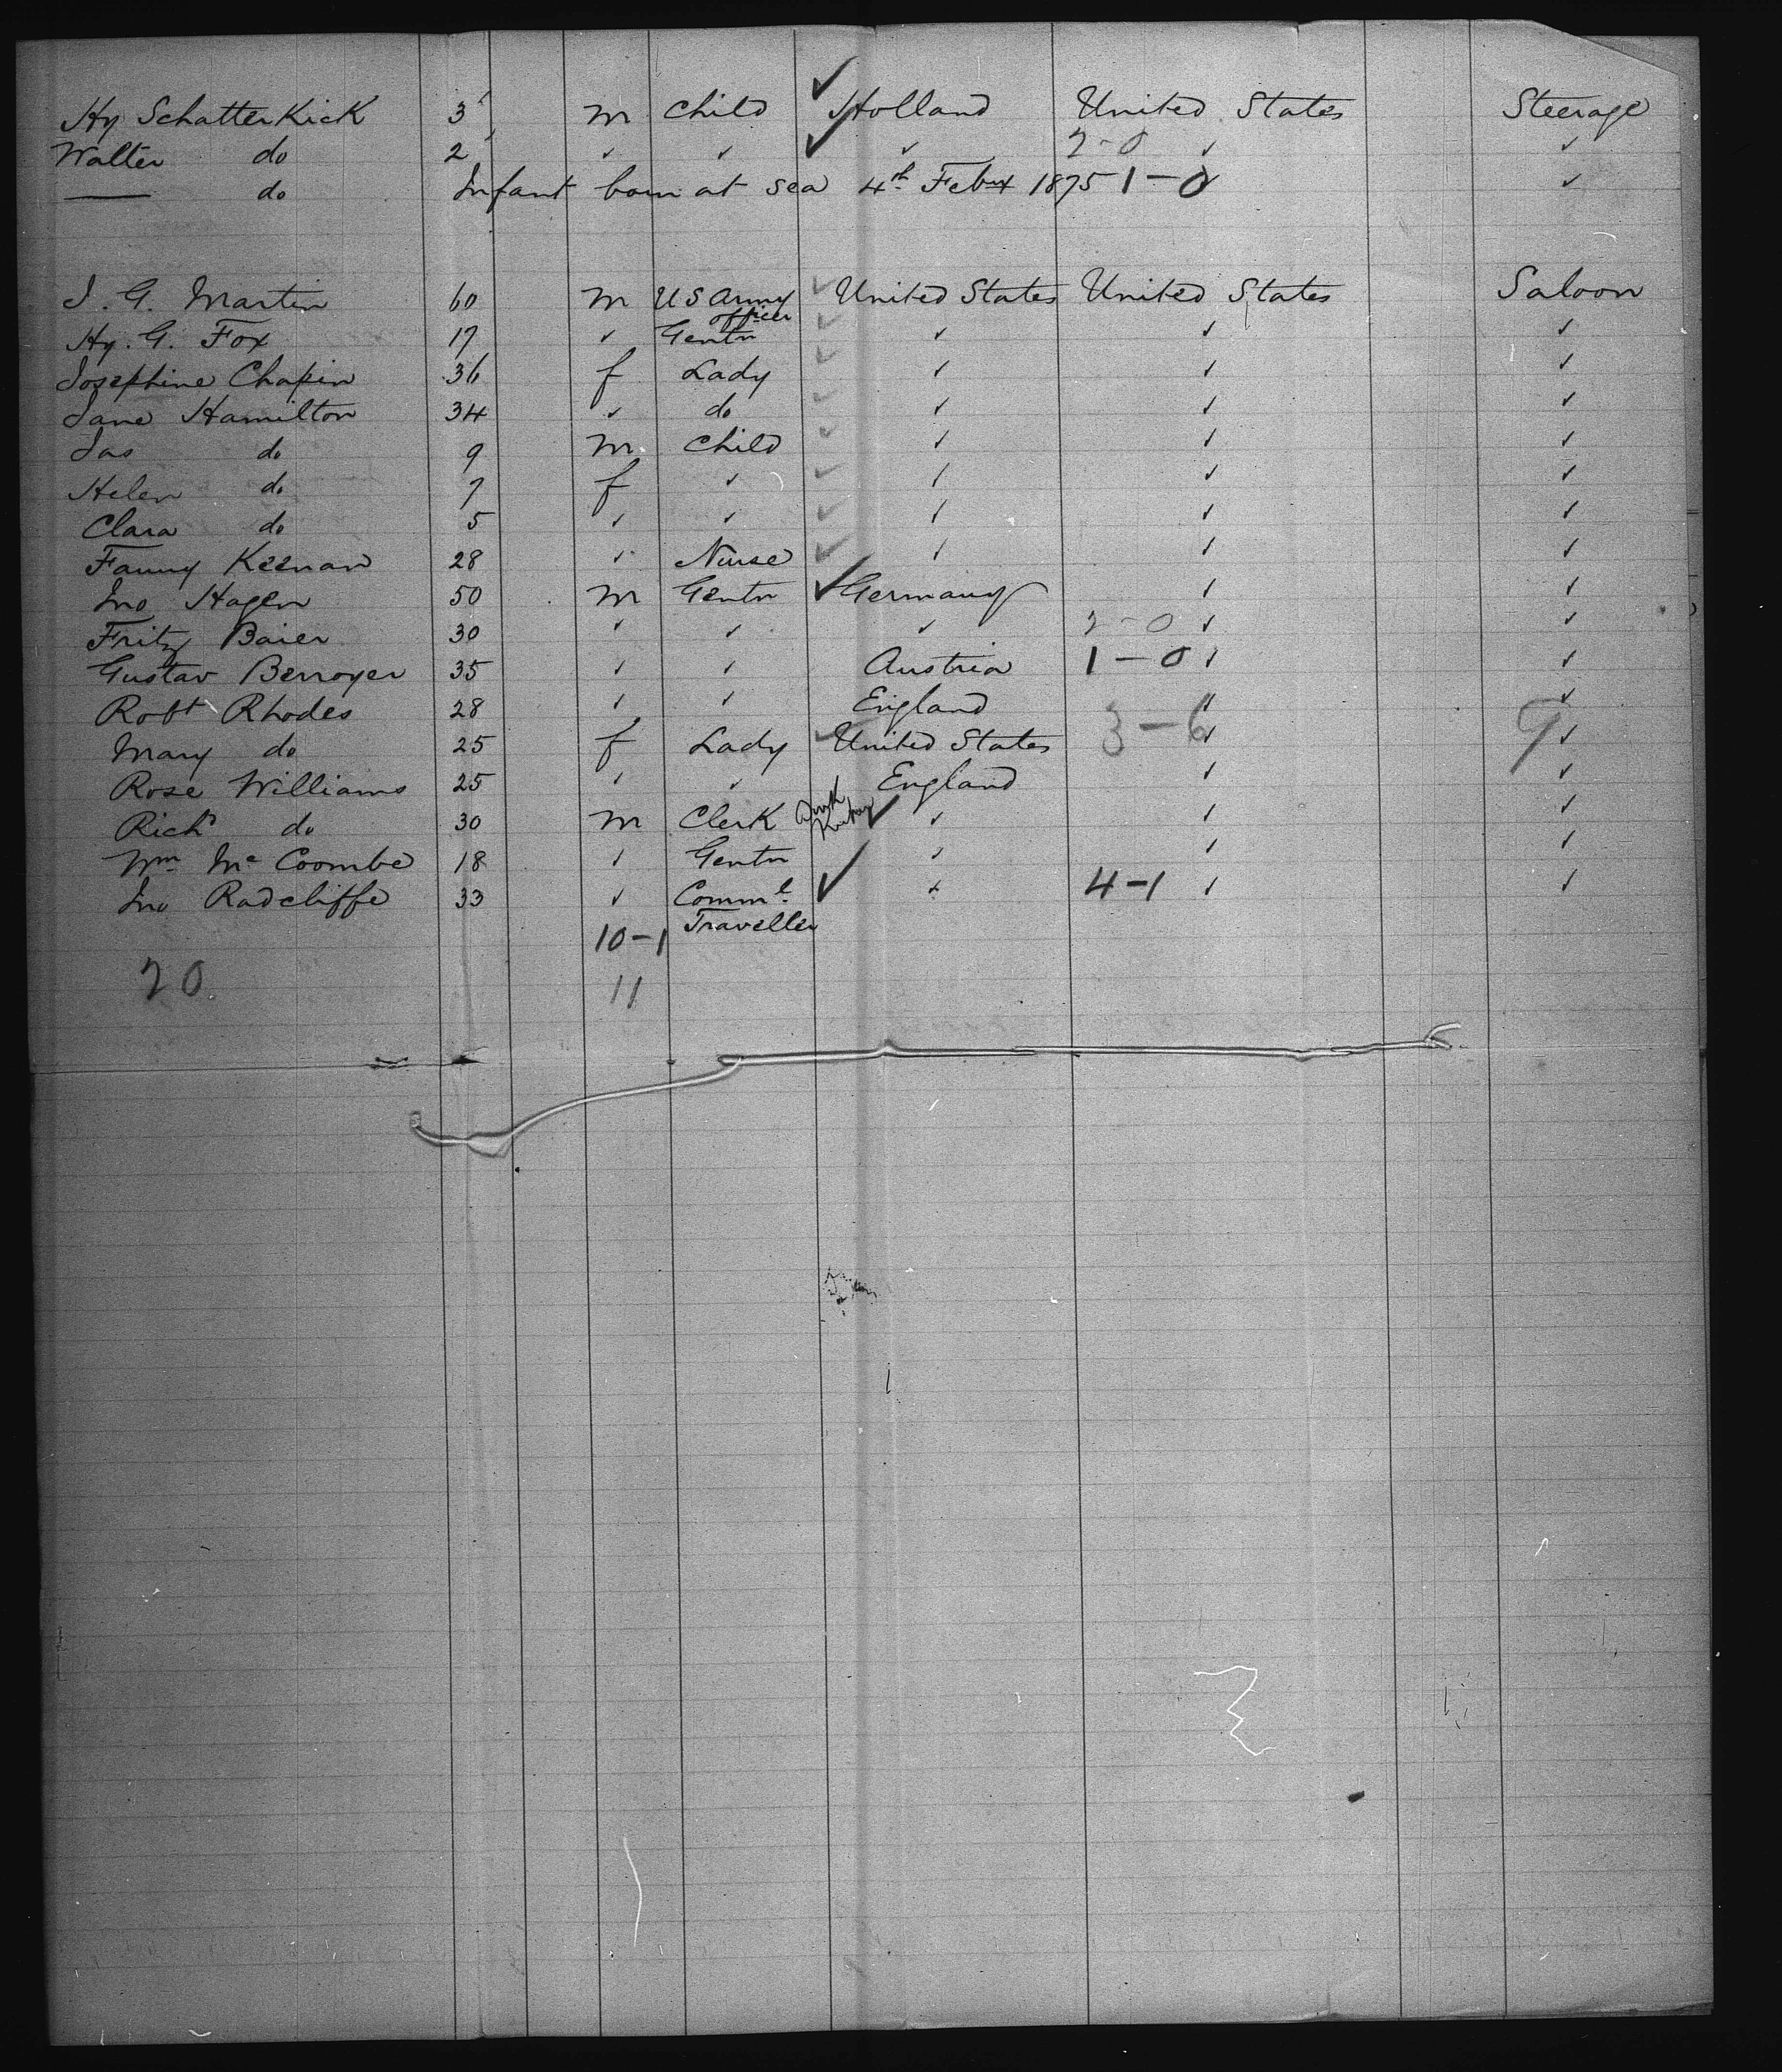 Hy Schatterkick 3 m Child ✓ Holland United States Steerage
Walter do 2 ✓ ✓ ✓ ✓ 2-0 ✓ ✓
— do Infant born at sea 4th Feby 1875 1-0 ✓
J. G. Martin 60 m U S Army officer ✓ United States United States Saloon
Hy. G. Fox 17 ✓ Gentn ✓ ✓ ✓ ✓
Josephine Chapin 36 f Lady ✓ ✓ ✓ ✓
Jane Hamilton 34 ✓ do ✓ ✓ ✓ ✓
Jas do 9 m. Child ✓ ✓ ✓ ✓
Helen do 7 f ✓ ✓ ✓ ✓ ✓
Clara do 5 ✓ ✓ ✓ ✓ ✓ ✓
Fanny Keenan 28 ✓ Nurse ✓ ✓ ✓ ✓
Jno Hagen 50 m Gentn ✓ Germany ✓ ✓
Fritz Baier 30 ✓ ✓ ✓ 2-0 ✓ ✓
Gustav Berroyer 35 ✓ ✓ Austria 1-0 ✓ ✓
Robt Rhodes 28 ✓ ✓ England ✓ ✓
Mary do 25 f Lady ✓ United States 3-6 ✓ 9 ✓
Rose Williams 25 ✓ ✓ England ✓ ✓
Richd do 30 m Clerk ✓ ✓ ✓ ✓
Wm McCoombe 18 ✓ Gentn ✓ ✓ ✓
Jno Radcliffe 33 ✓ Comml. ✓ ✓ 4-1 ✓ ✓
10-1 Traveller
20 11